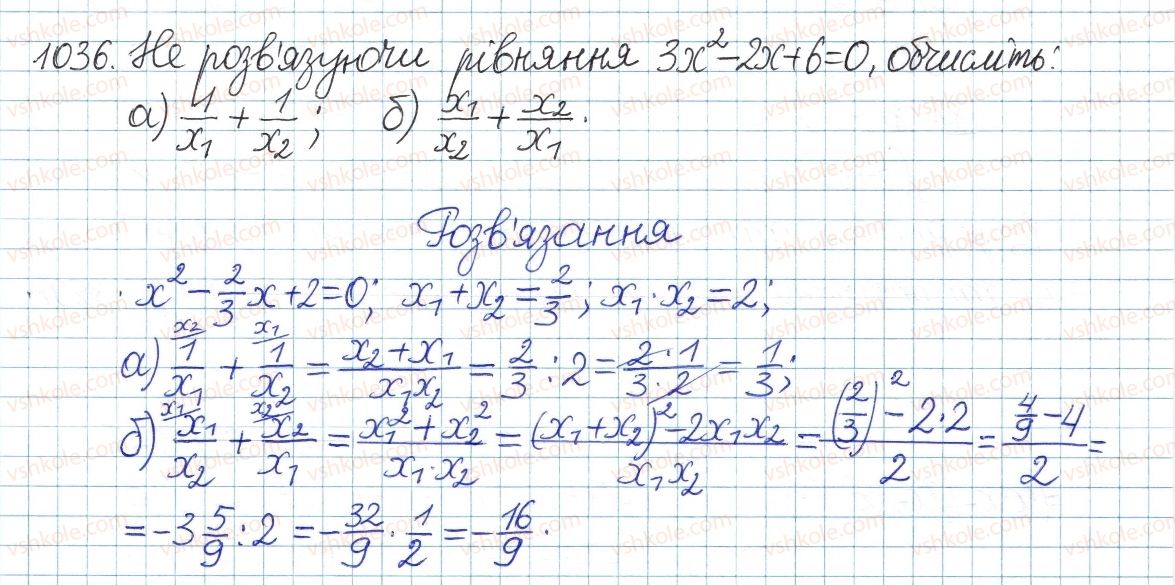 1036. Не розв'язуючи рівняння 3x²-2x+6=0, обчисліть:
а) 1/x₁ + 1/x₂; б) x₁/x₂ + x₂/x₁.
Розв'язання
x² - 2/3 x + 2 = 0; x₁ + x₂ = 2/3; x₁ · x₂ = 2;
а) ˣ²⁄ 1/x₁ + ˣ¹⁄ 1/x₂ = (x₂ + x₁)/(x₁x₂) = 2/3 : 2 = (2·1)/(3·2) = 1/3;
б) ˣ¹⁄ x₁/x₂ + ˣ²⁄ x₂/x₁ = (x₁² + x₂²)/(x₁·x₂) = ((x₁ + x₂)² - 2x₁x₂)/(x₁x₂) = ((2/3)² - 2·2)/2 = (4/9 - 4)/2 =
= -3 5/9 : 2 = -32/9 · 1/2 = -16/9.
vshkole.com